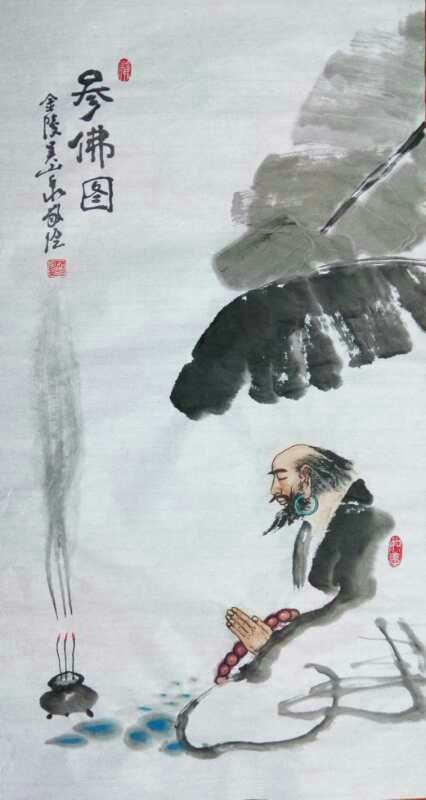 参佛图
金陵吴山泉敬绘